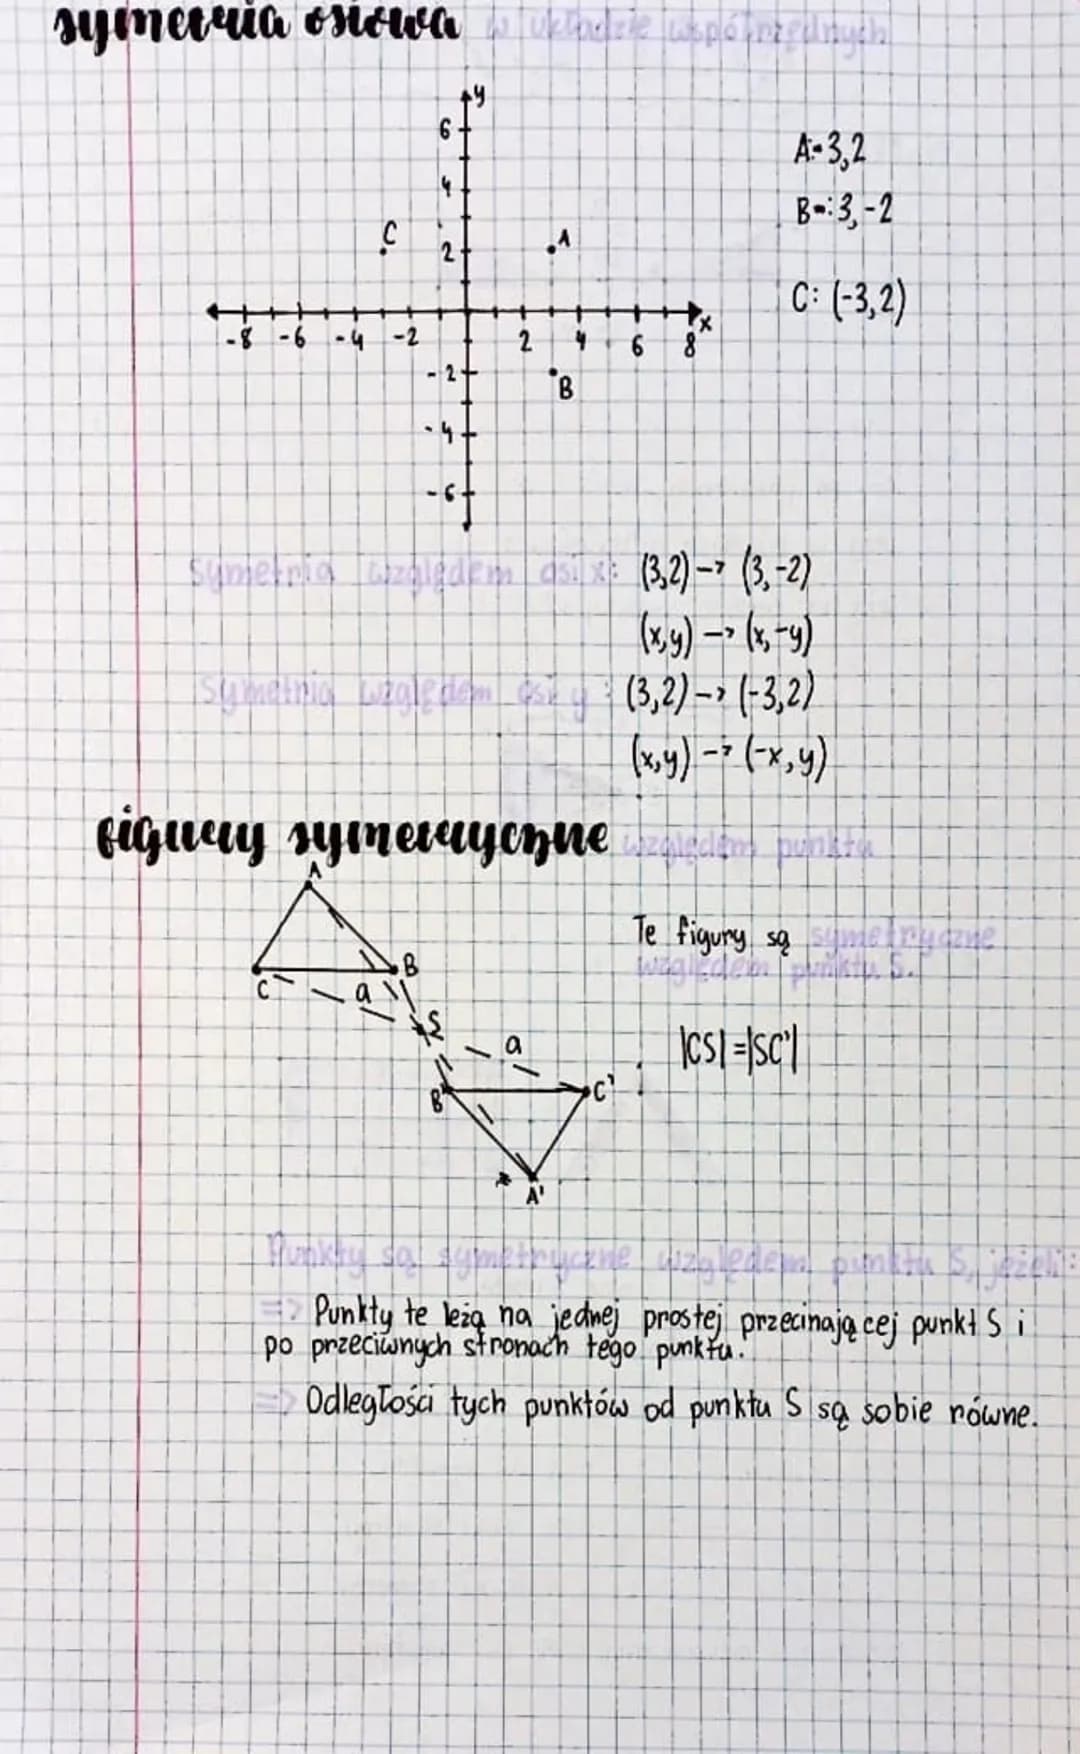 symetria osiowa w układzie współrzędnych
y
6
4
2
C
A
-8 -6 -4 -2 2 4 6 8 x
-2
B
-4
-6
A=3,2
B=:3,-2
C: (-3,2)
Symetria względem osi x: (3,2) -> (3,-2)
(x,y) -> (x,-y)
Symetria względem osi y: (3,2) -> (-3,2)
(x,y) -> (-x,y)
figury symetryczne względem punktu
A
B
C
a
S
a
B'
C'
A'
Te figury są symetryczne
względem punktu S.
|CS|=|SC'|
Punkty są symetryczne względem punktu S, jeżeli:
=> Punkty te leżą na jednej prostej przecinającej punkt S i
po przeciwnych stronach tego punktu.
=> Odległości tych punktów od punktu S są sobie równe.